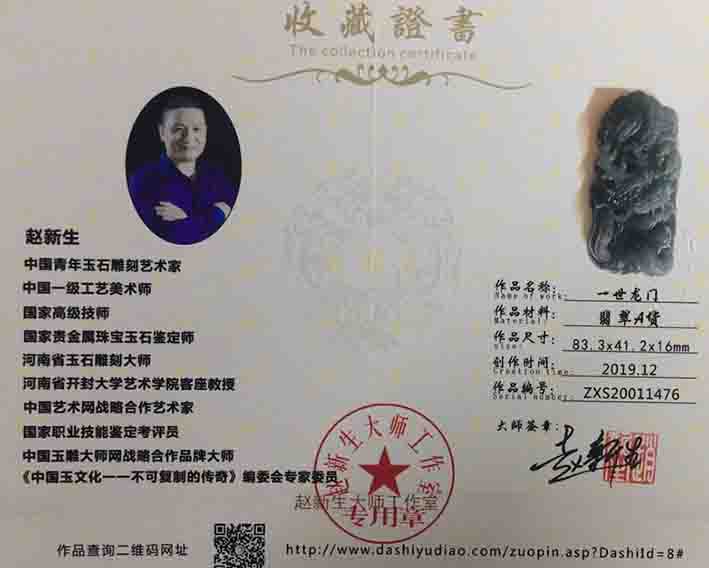 收藏證書
The collection certificate
赵新生
中国青年玉石雕刻艺术家
中国一级工艺美术师
国家高级技师
国家贵金属珠宝玉石鉴定师
河南省玉石雕刻大师
河南省开封大学艺术学院客座教授
中国艺术网战略合作艺术家
国家职业技能鉴定考评员
中国玉雕大师网战略合作品牌大师
《中国玉文化一一不可复制的传奇》编委会专家委员
作品名称: 一世龙门
Name of work:
作品材料: 翡翠A货
Material:
作品尺寸: 83.3x41.2x16mm
Size:
创作时间: 2019.12
Creation time:
作品编号: ZXS20011476
Serial number:
大师签章:
赵新生
赵新生大师工作室
专用章
赵新生大师工作室
作品查询二维码网址
http://www.dashiyudiao.com/zuopin.asp?DashiId=8#